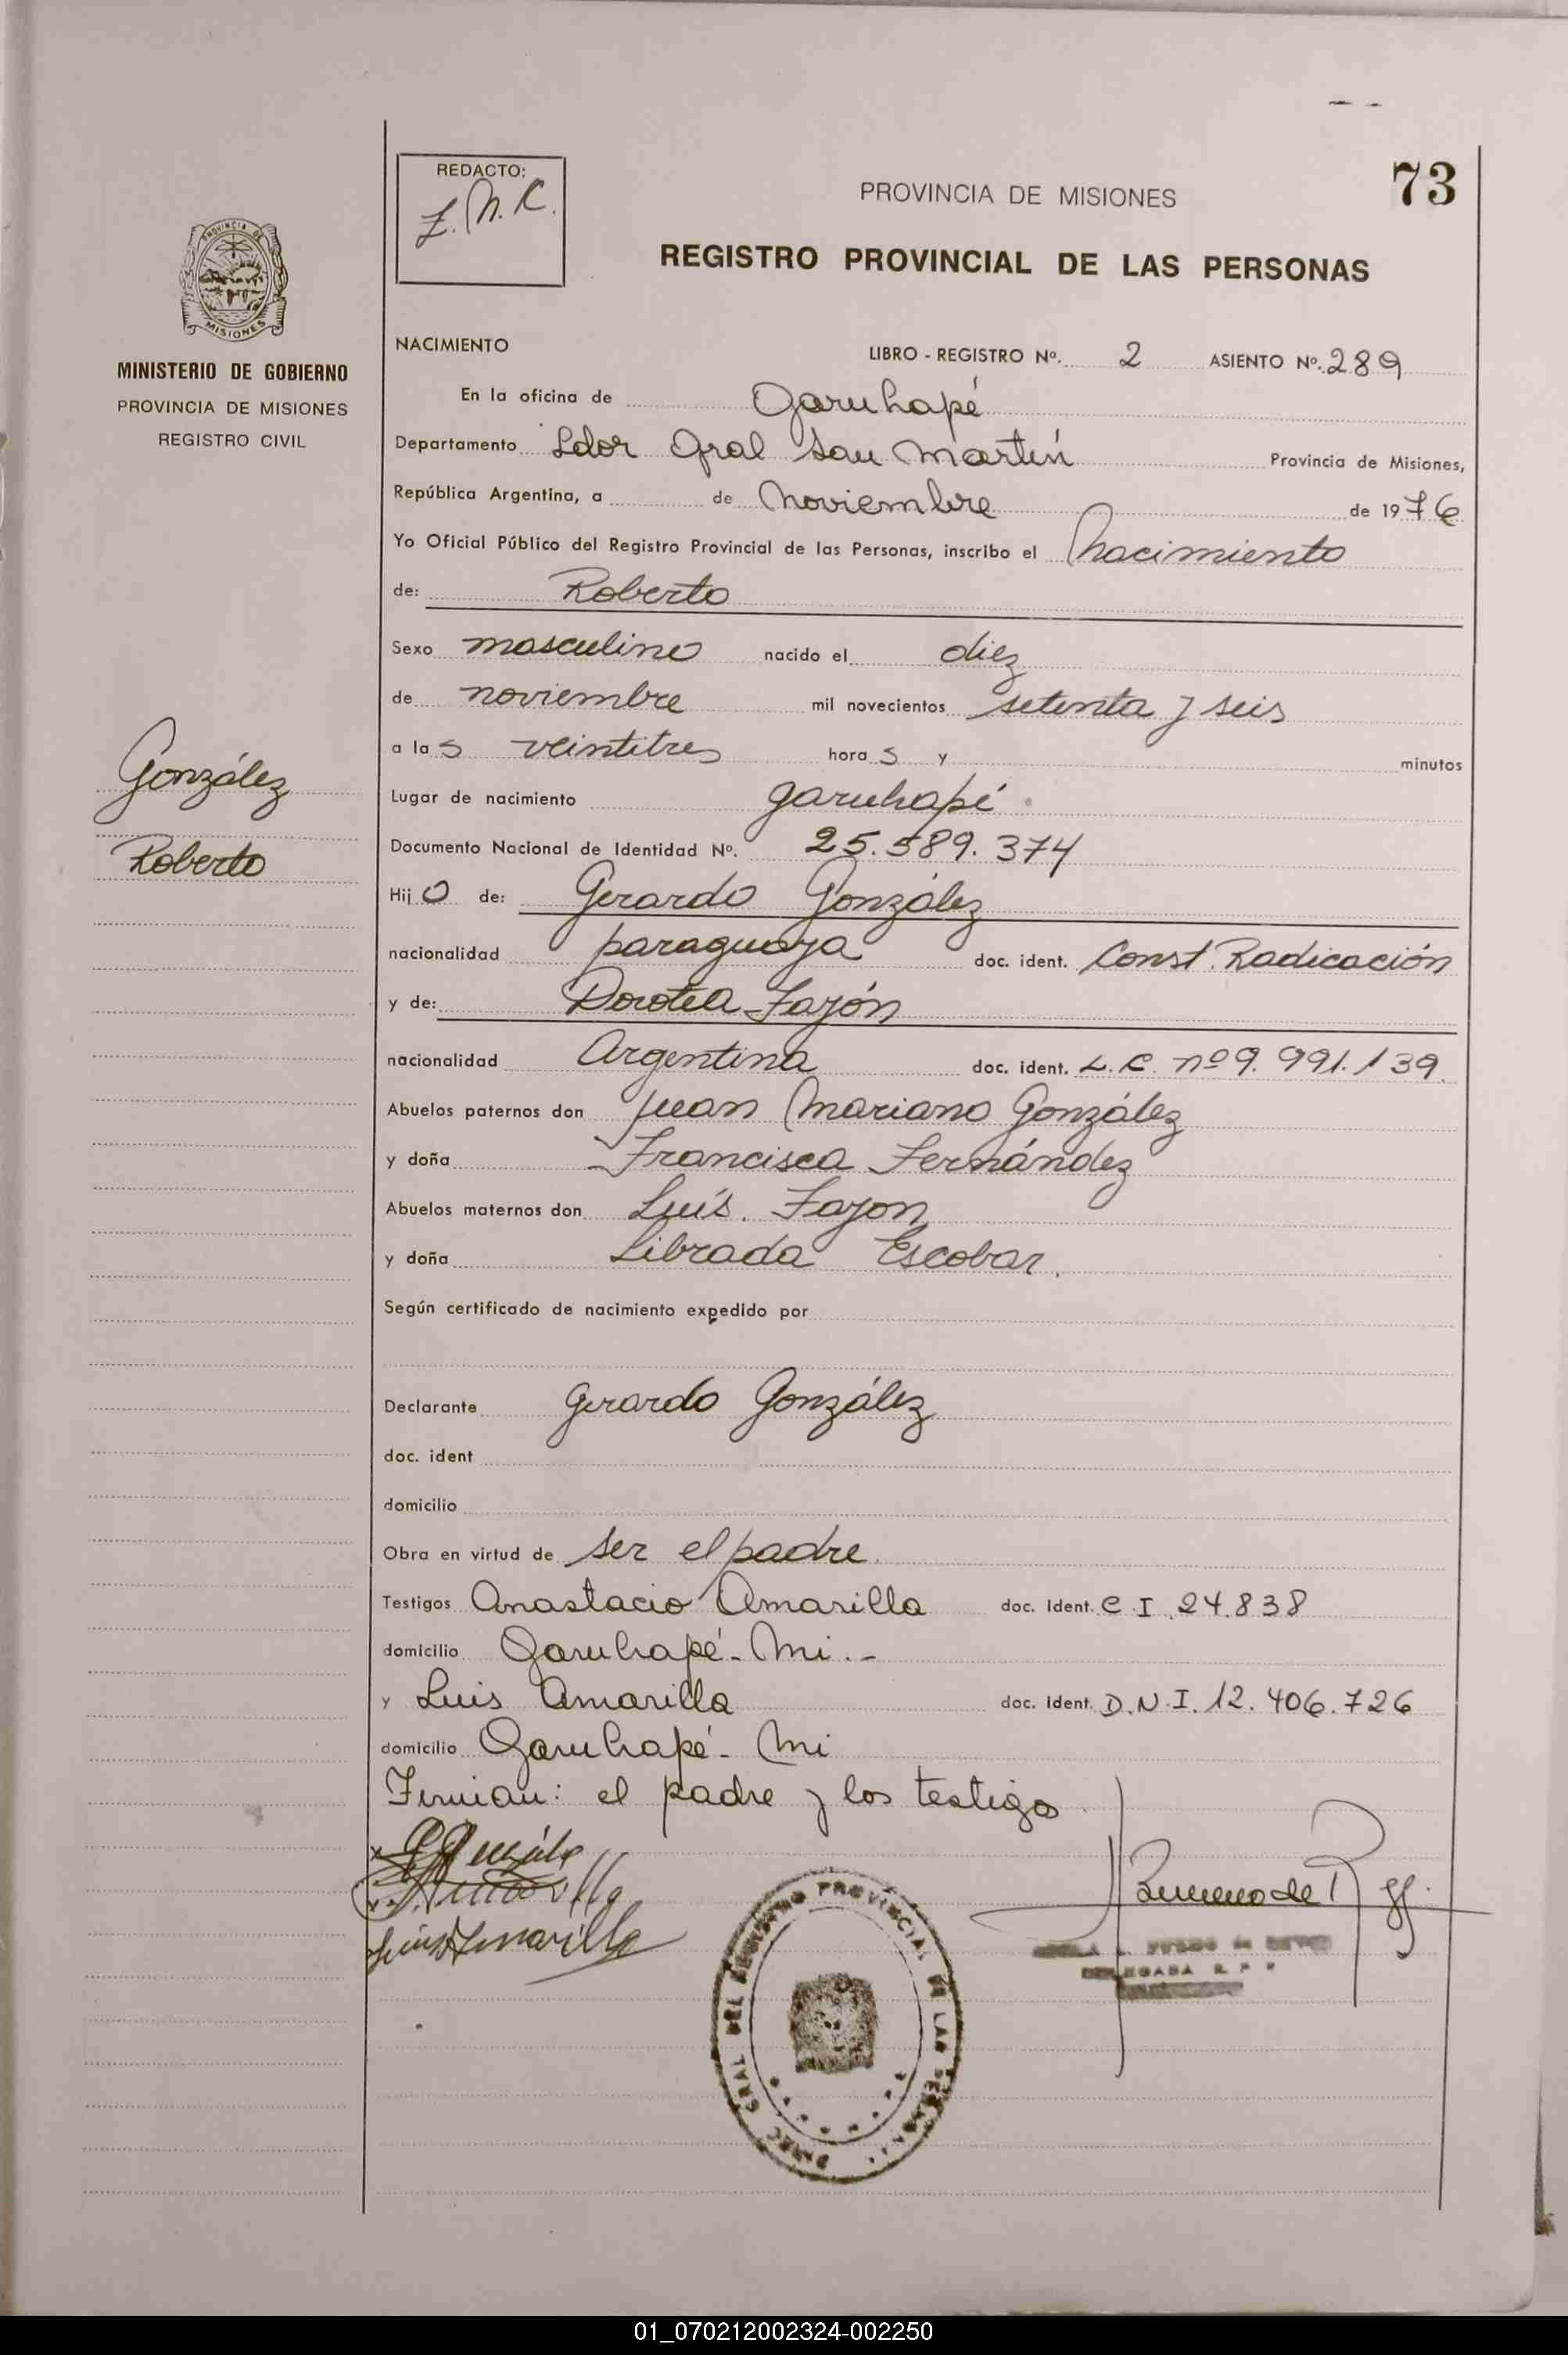 73
REDACTO:
PROVINCIA DE MISIONES
REGISTRO PROVINCIAL DE LAS PERSONAS
PROVINCIA DE
MISIONES
MINISTERIO DE GOBIERNO
PROVINCIA DE MISIONES
REGISTRO CIVIL
González
Roberto
NACIMIENTO
LIBRO - REGISTRO Nº. 2 ASIENTO Nº. 289
En la oficina de Garuhapé
Departamento Ldor Gral San Martín Provincia de Misiones,
República Argentina, a de Noviembre de 1976
Yo Oficial Público del Registro Provincial de las Personas, inscribo el Nacimiento
de: Roberto
Sexo masculino nacido el diez
de noviembre mil novecientos setenta y seis
a las veintitres horas y minutos
Lugar de nacimiento garuhapé.
Documento Nacional de Identidad Nº. 25.589.374
Hijo de: Gerardo González
nacionalidad paraguaya doc. ident. Const. Radicación
y de: Dorotea Fayón
nacionalidad Argentina doc. ident. L.C. nº 9.991.139.
Abuelos paternos don Juan Mariano González
y doña Francisca Fernández
Abuelos maternos don Luís. Fayon
y doña Librada Escobar.
Según certificado de nacimiento expedido por
Declarante Gerardo González
doc. ident
domicilio
Obra en virtud de ser el padre.
Testigos Anastacio Amarilla doc. Ident. C.I. 24.838
domicilio Garuhapé - Mi.-
y Luis Amarilla doc. Ident. D.N.I. 12.406.726
domicilio Garuhapé - Mi
Firman: el padre y los testigos
Luis Amarilla
DIREC. GRAL DEL REGISTRO PROVINCIAL DE LAS
01_070212002324-002250